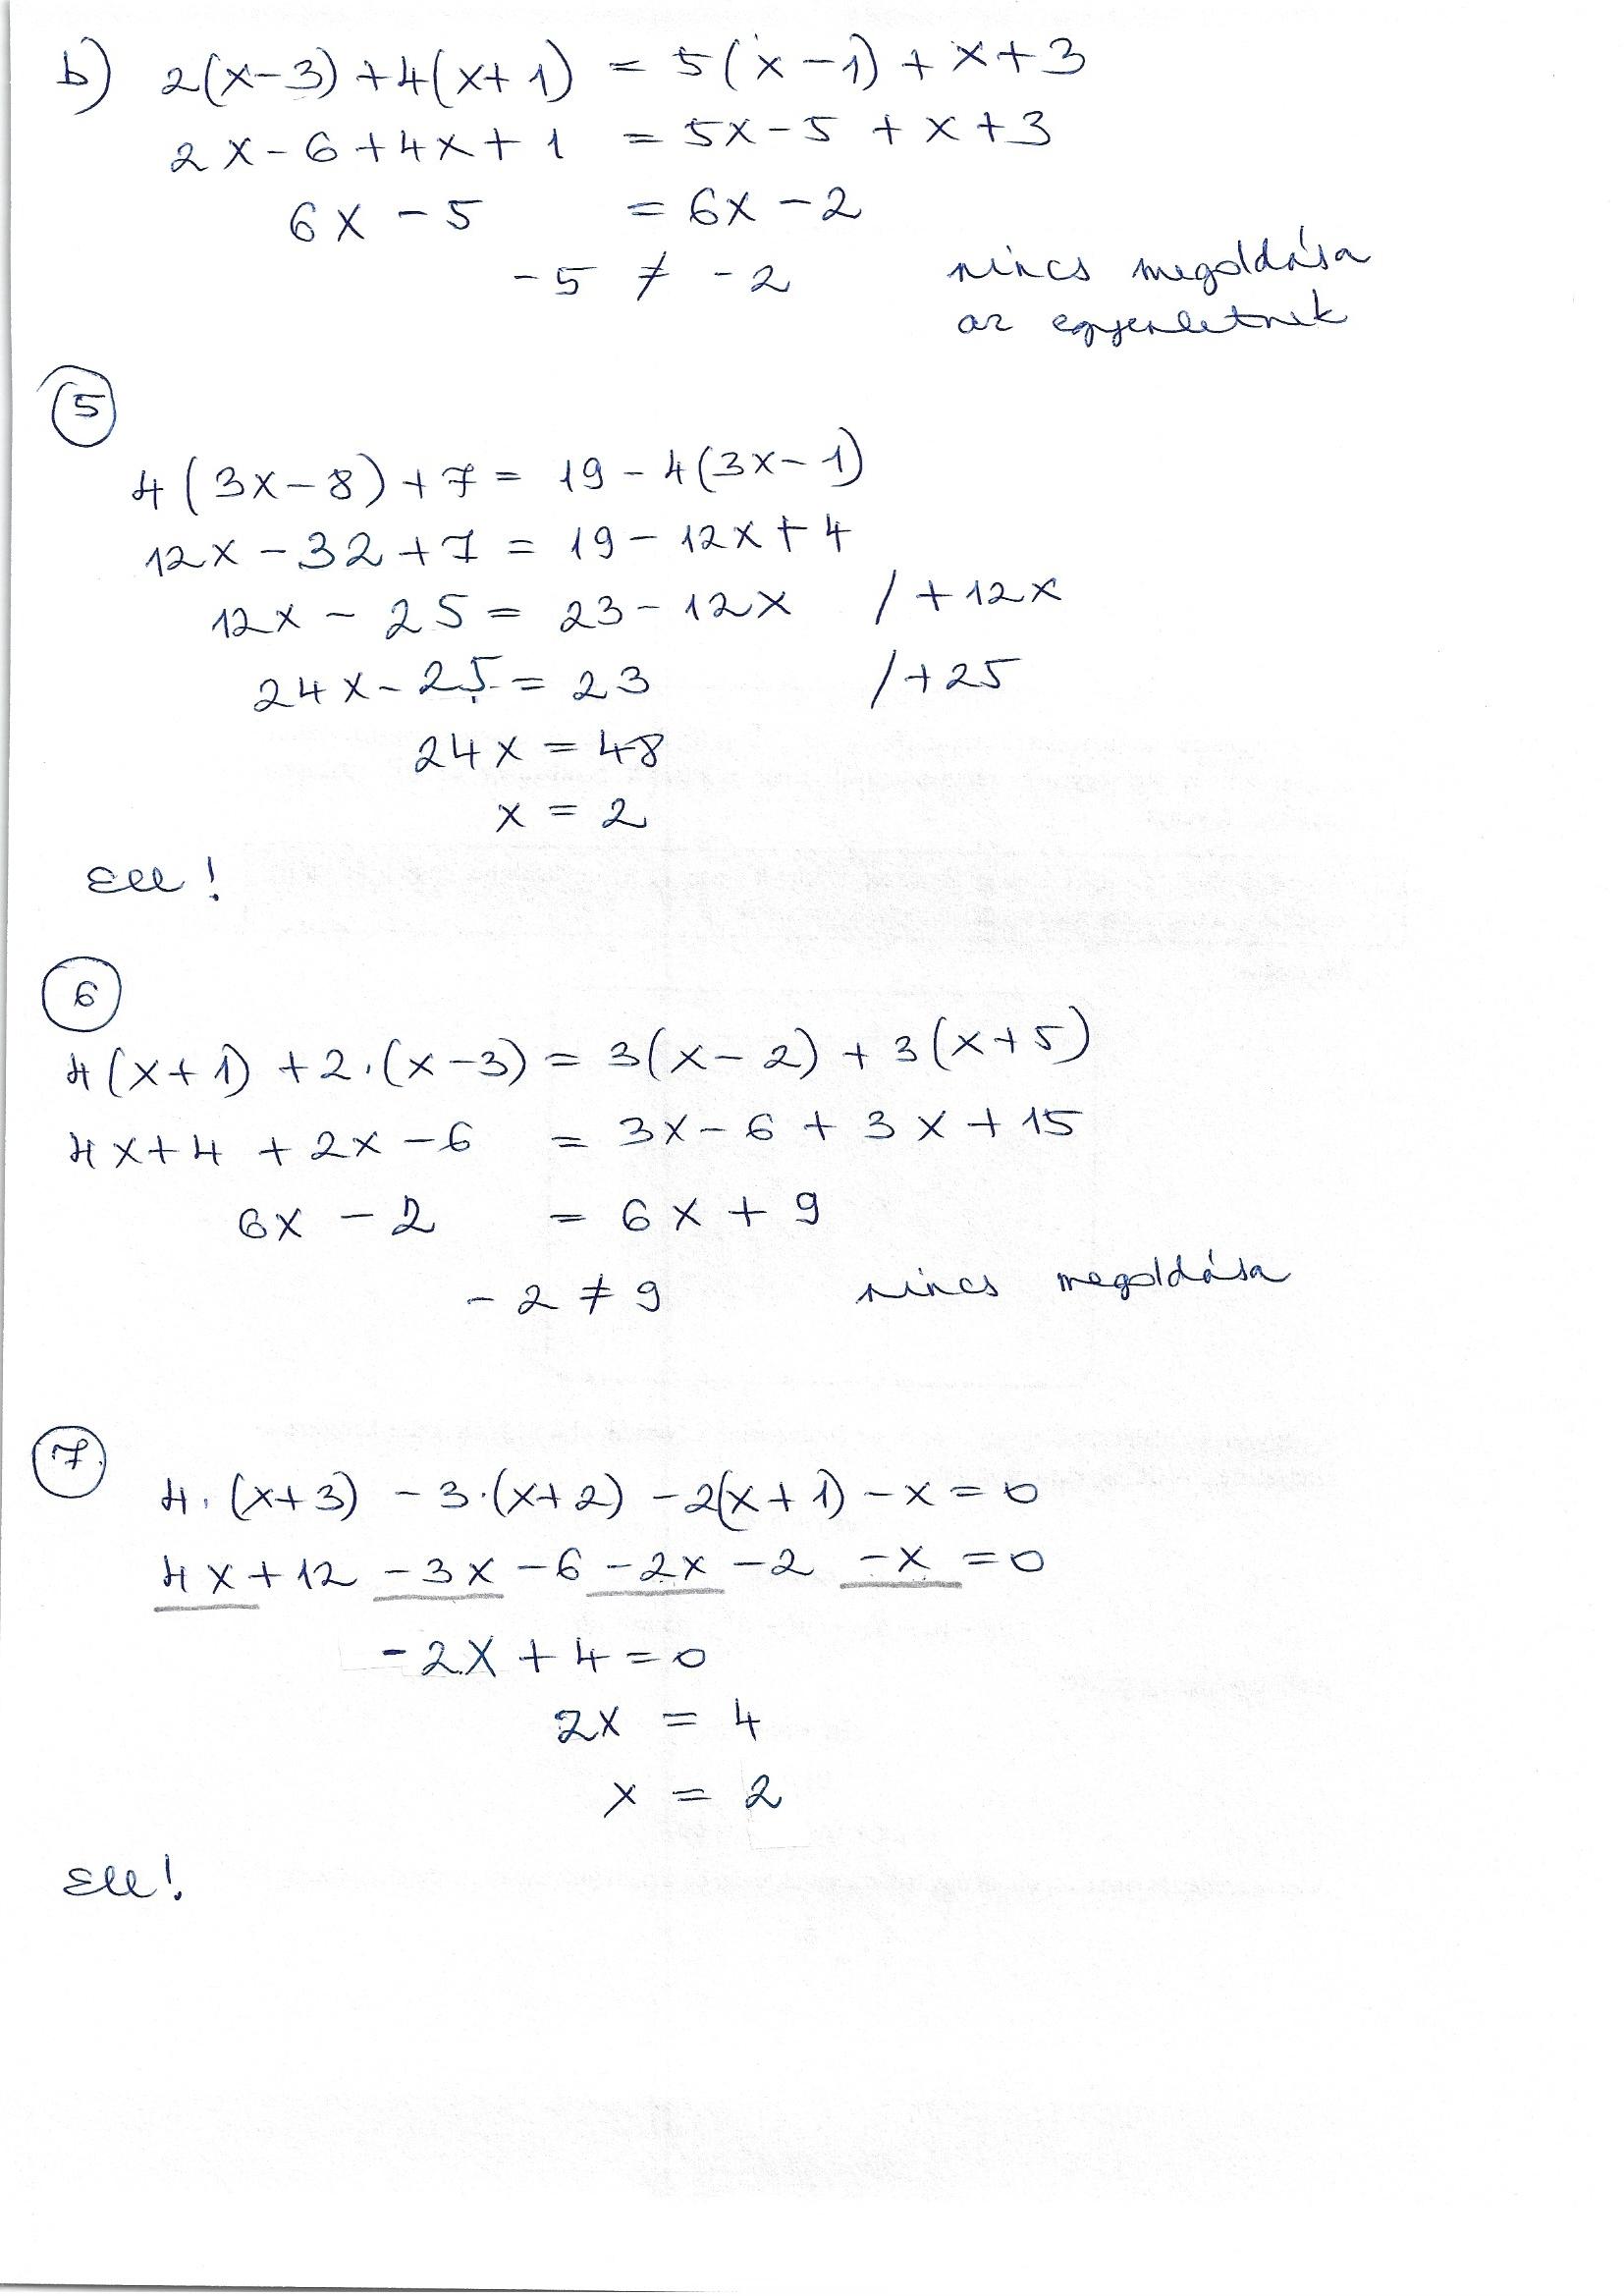 b) 2(x-3)+4(x+1) = 5(x-1)+x+3
2x-6+4x+1 = 5x-5+x+3
6x-5 = 6x-2
-5 ≠ -2 nincs megoldása
az egyenletnek
5
4(3x-8)+7 = 19-4(3x-1)
12x-32+7 = 19-12x+4
12x-25 = 23-12x /+12x
24x-25 = 23 /+25
24x = 48
x = 2
Ell!
6
4(x+1)+2·(x-3) = 3(x-2)+3(x+5)
4x+4+2x-6 = 3x-6+3x+15
6x-2 = 6x+9
-2 ≠ 9 nincs megoldása
7.
4·(x+3)-3·(x+2)-2(x+1)-x=0
4x+12-3x-6-2x-2-x=0
-2x+4=0
2x = 4
x = 2
Ell!